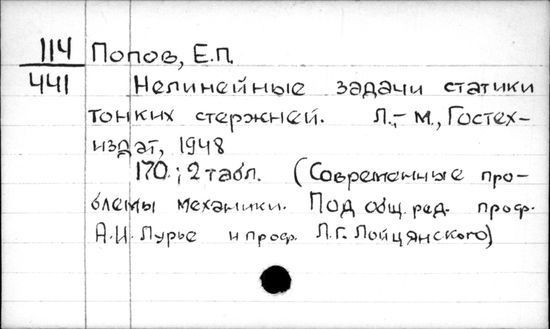 114 Попов, Е.П.
441 Нелинейные задачи статики
тонких стержней. Л.-М., Гостех-
издат, 1948
170.; 2 табл. (Современные про-
блемы механики. Под общ. ред. проф.
А.И. Лурье и проф. Л.Г. Лойцянского)